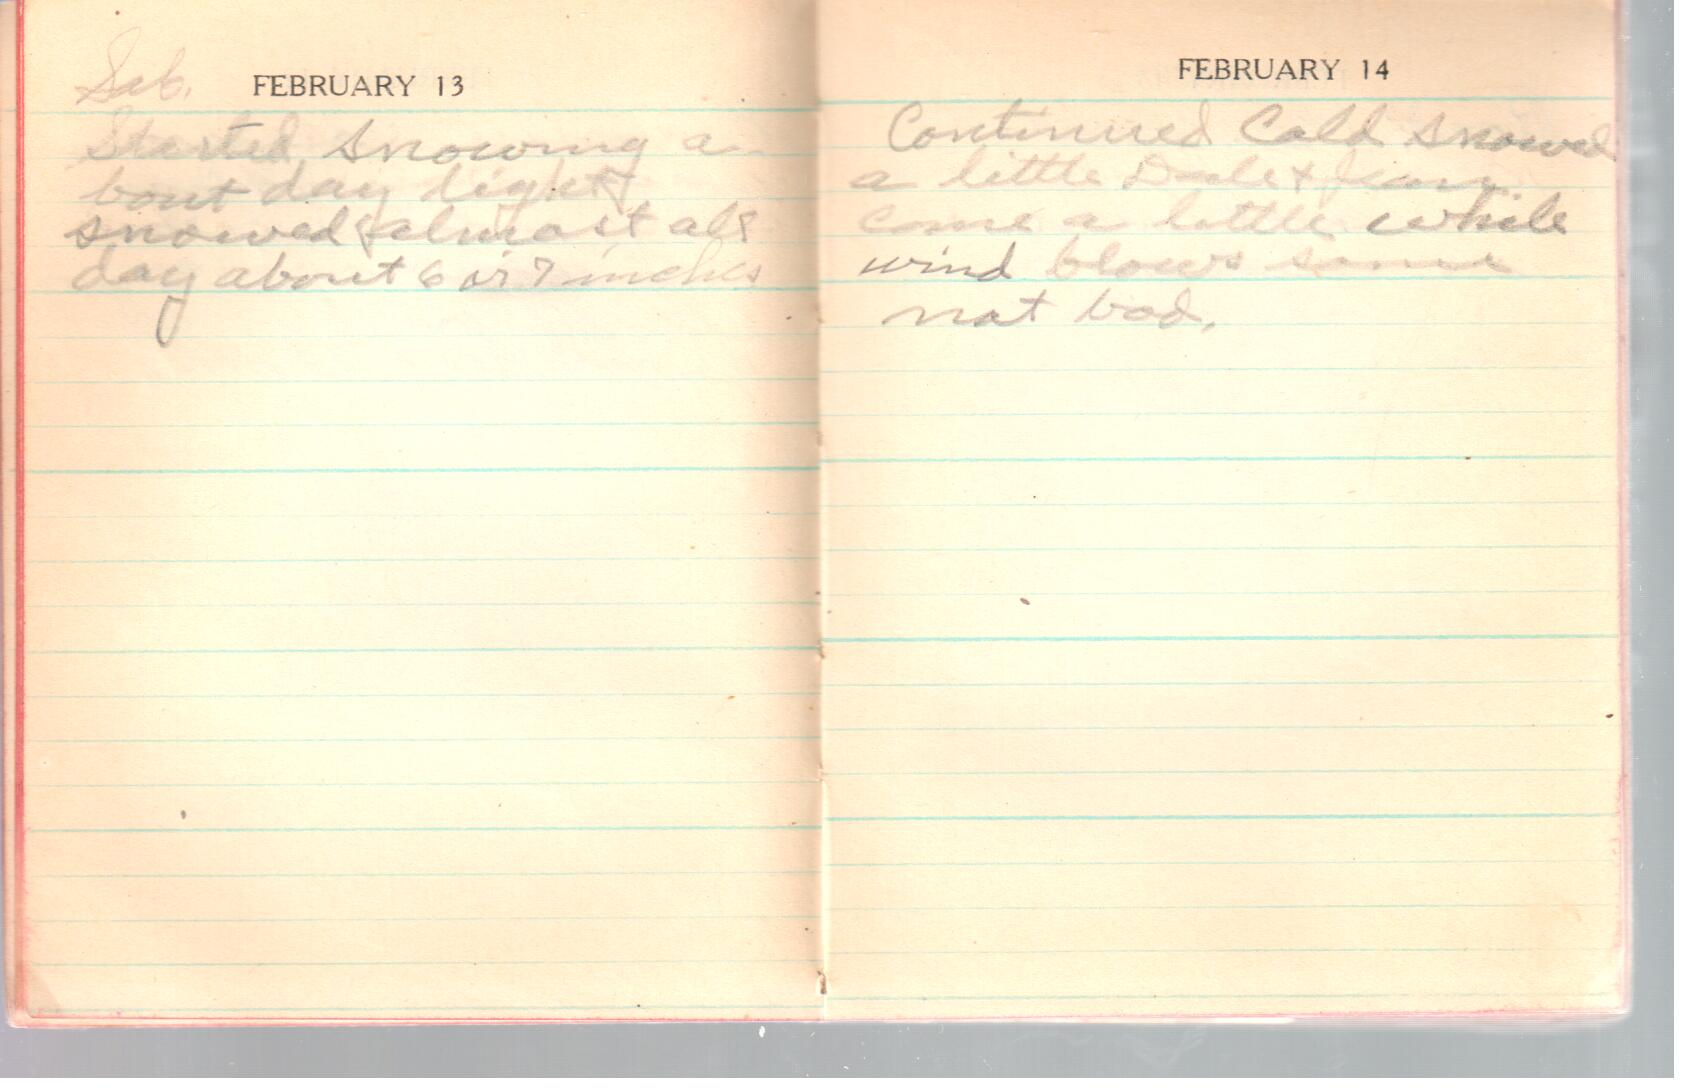 Sab. FEBRUARY 13
Started snowing a-
bout day light
snowed almost all
day about 6 or 7 inches
FEBRUARY 14
Continued Cold snowed
a little Dale & Jean
come a little while
wind blows some
not bad.